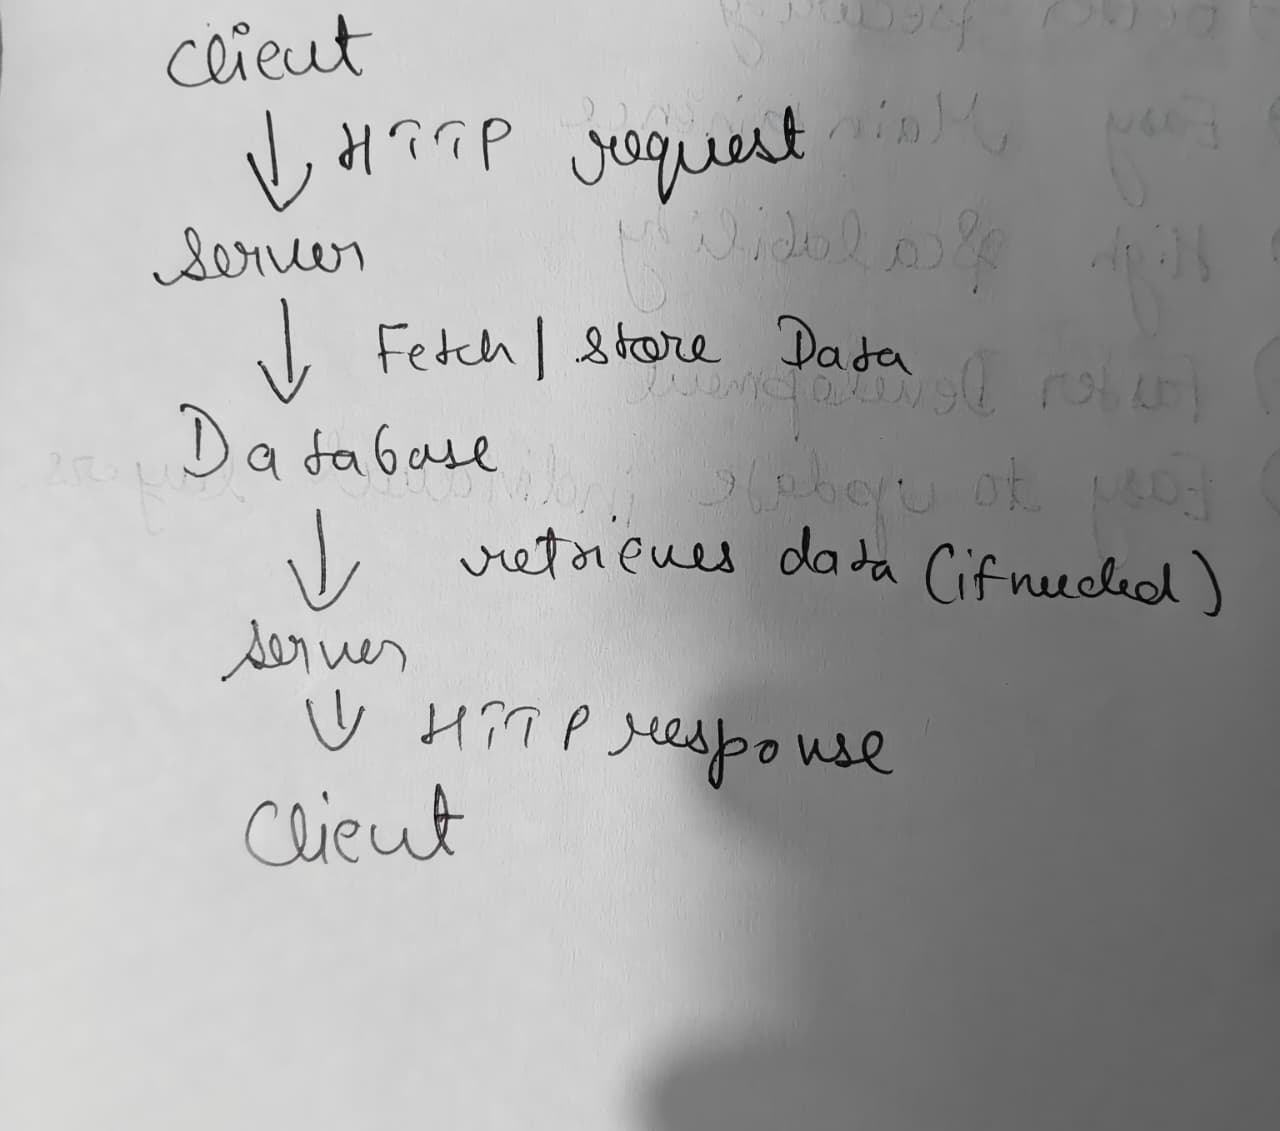 Client
↓ HTTP request
Server
↓ Fetch / store Data
Database
↓ retrieves data (if needed)
server
↓ HTTP response
Client